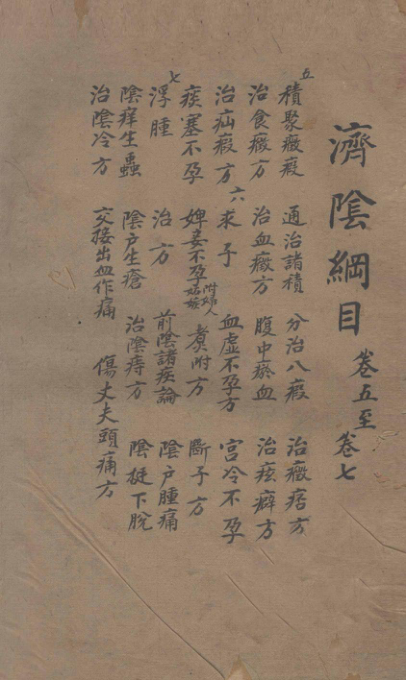 濟陰綱目 卷五至卷七
五 積聚癥瘕 通治諸積 分治八瘕 治癥痞方
治食癥方 治血癥方 腹中瘀血 治痃癖方
治疝瘕方 六 求子 血虛不孕方 宮冷不孕
痰塞不孕 婢妾不孕 附婦人嫉妬 煑附方 斷子方
七 浮腫 治方 前陰諸疾論 陰戶腫痛
陰痒生蟲 陰戶生瘡 治陰痔方 陰挺下脫
治陰冷方 交接出血作痛 傷丈夫頭痛方